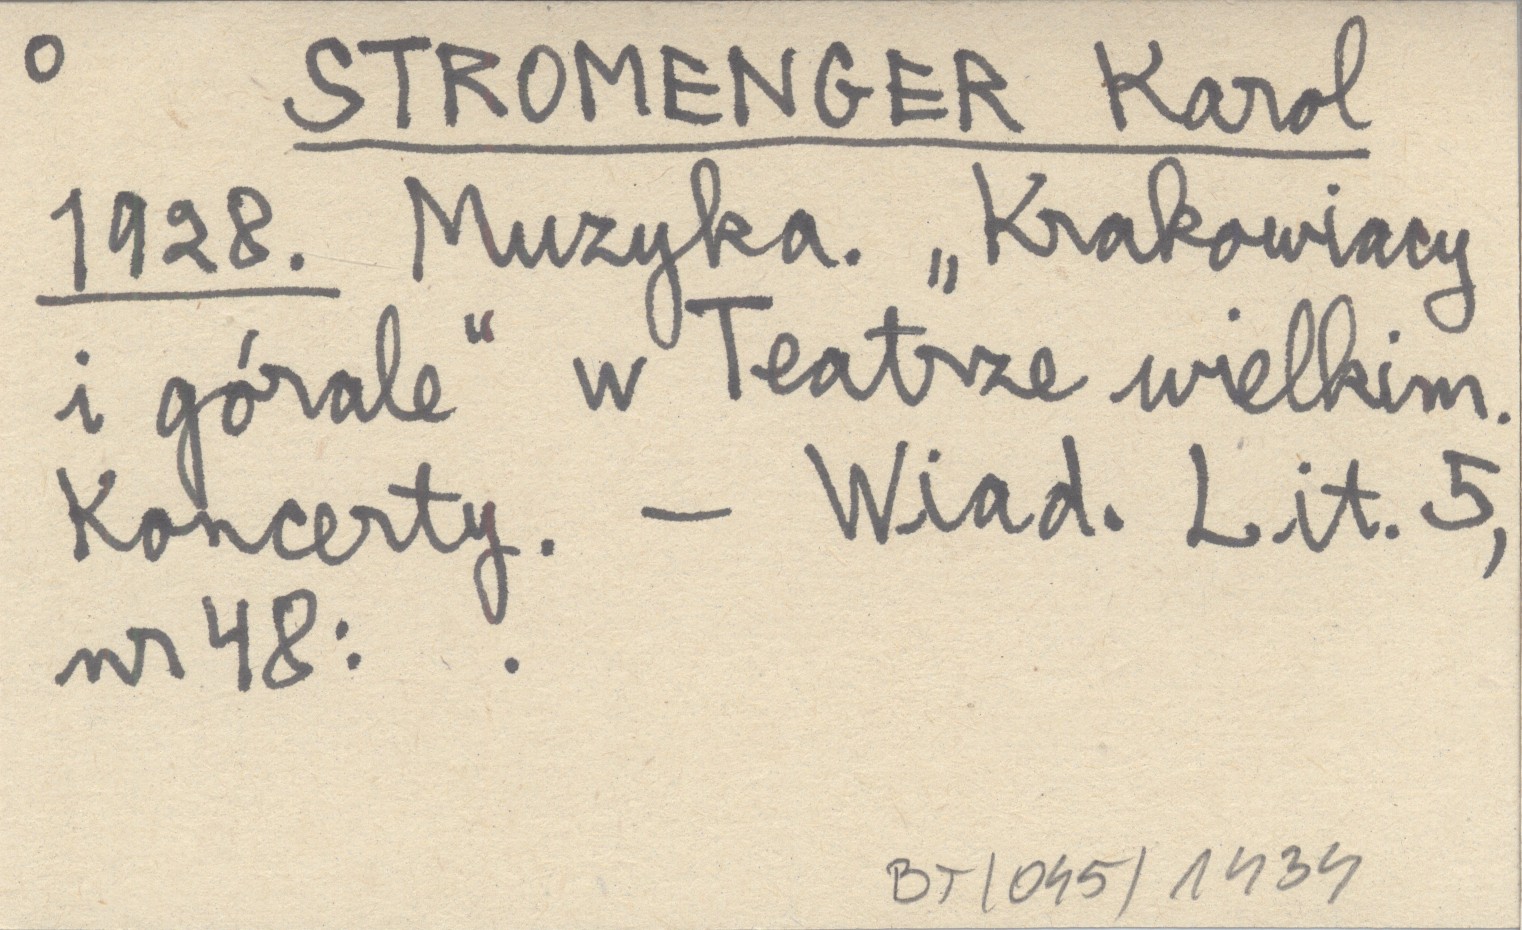 o STROMENGER Karol
1928. Muzyka. „Krakowiacy
i górale“ w Teatrze wielkim.
Koncerty. — Wiad. Lit. 5,
nr 48: .
BT/045/1434